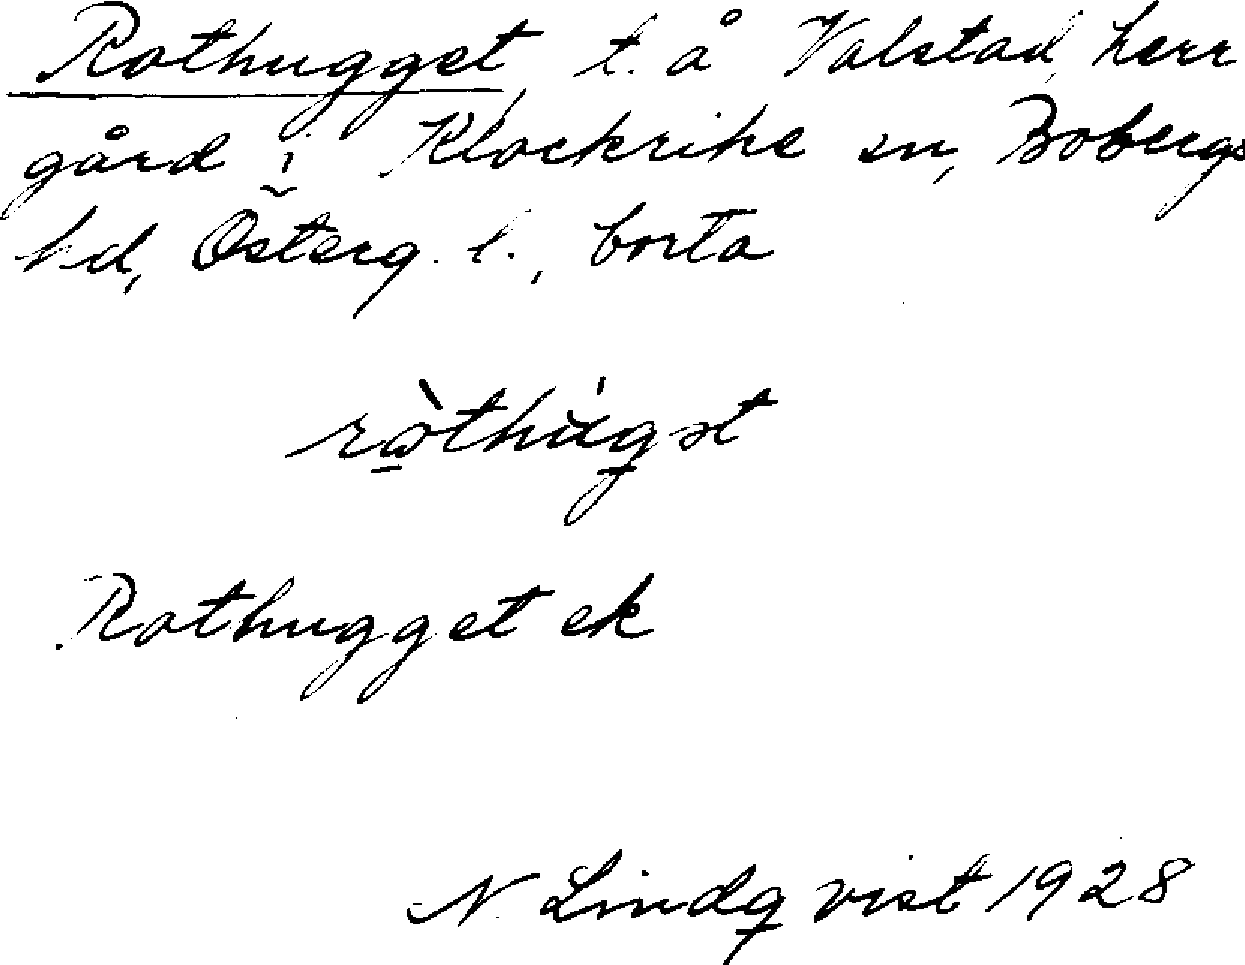 Rothugget, t. å Valstad, herr
gård i Klockrike sn, Bobergs
hd, Österg. l., borta
Rothugget ek
N. Lindqvist 1928